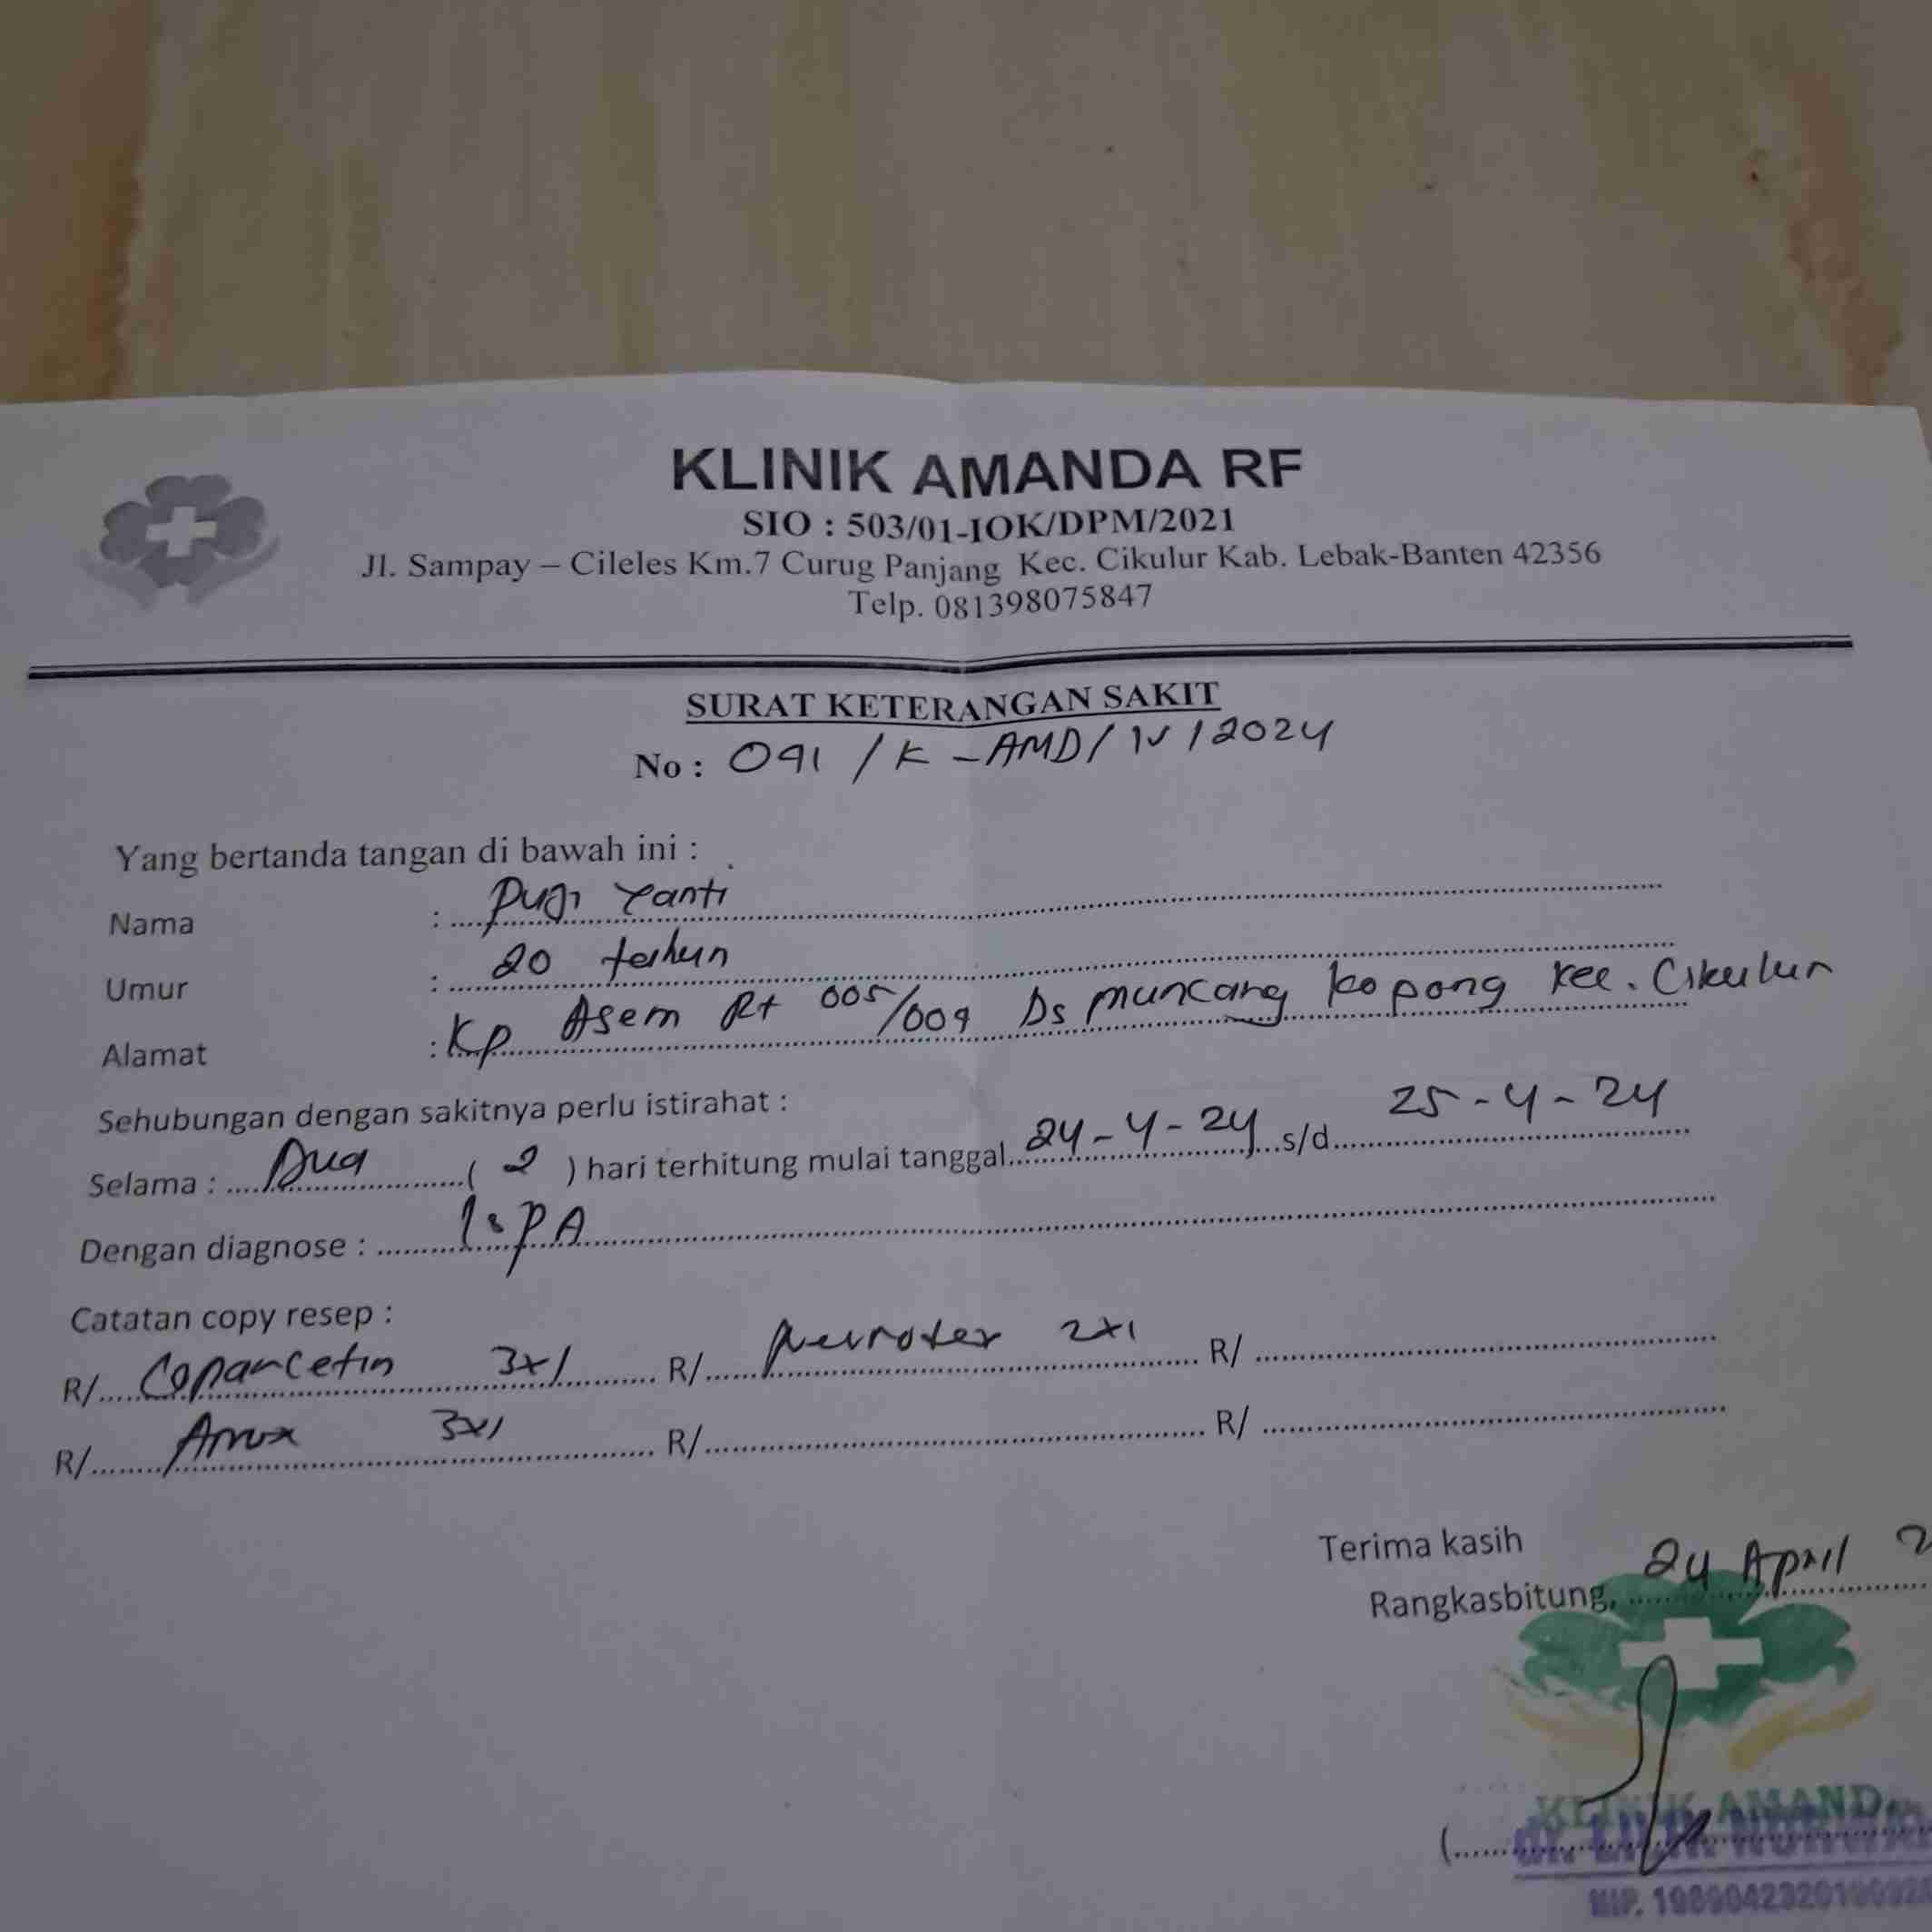 KLINIK AMANDA RF
SIO : 503/01-IOK/DPM/2021
Jl. Sampay – Cileles Km.7 Curug Panjang Kec. Cikulur Kab. Lebak-Banten 42356
Telp. 081398075847
SURAT KETERANGAN SAKIT
No : 091 / K - AMD / IV / 2024
Yang bertanda tangan di bawah ini :
Nama : Puji Yanti
Umur : 20 tahun
Alamat : Kp Asem Rt 005/009 Ds muncang kopong kec. Cikulur
Sehubungan dengan sakitnya perlu istirahat :
Selama : Dua ( 2 ) hari terhitung mulai tanggal 24-4-24 s/d 25-4-24
Dengan diagnose : ISPA
Catatan copy resep :
R/ Coparcetin 3x1 R/ 2x1 R/
R/ 3x1 R/ R/
Terima kasih
Rangkasbitung, 24 April
KLINIK AMANDA
NIP.